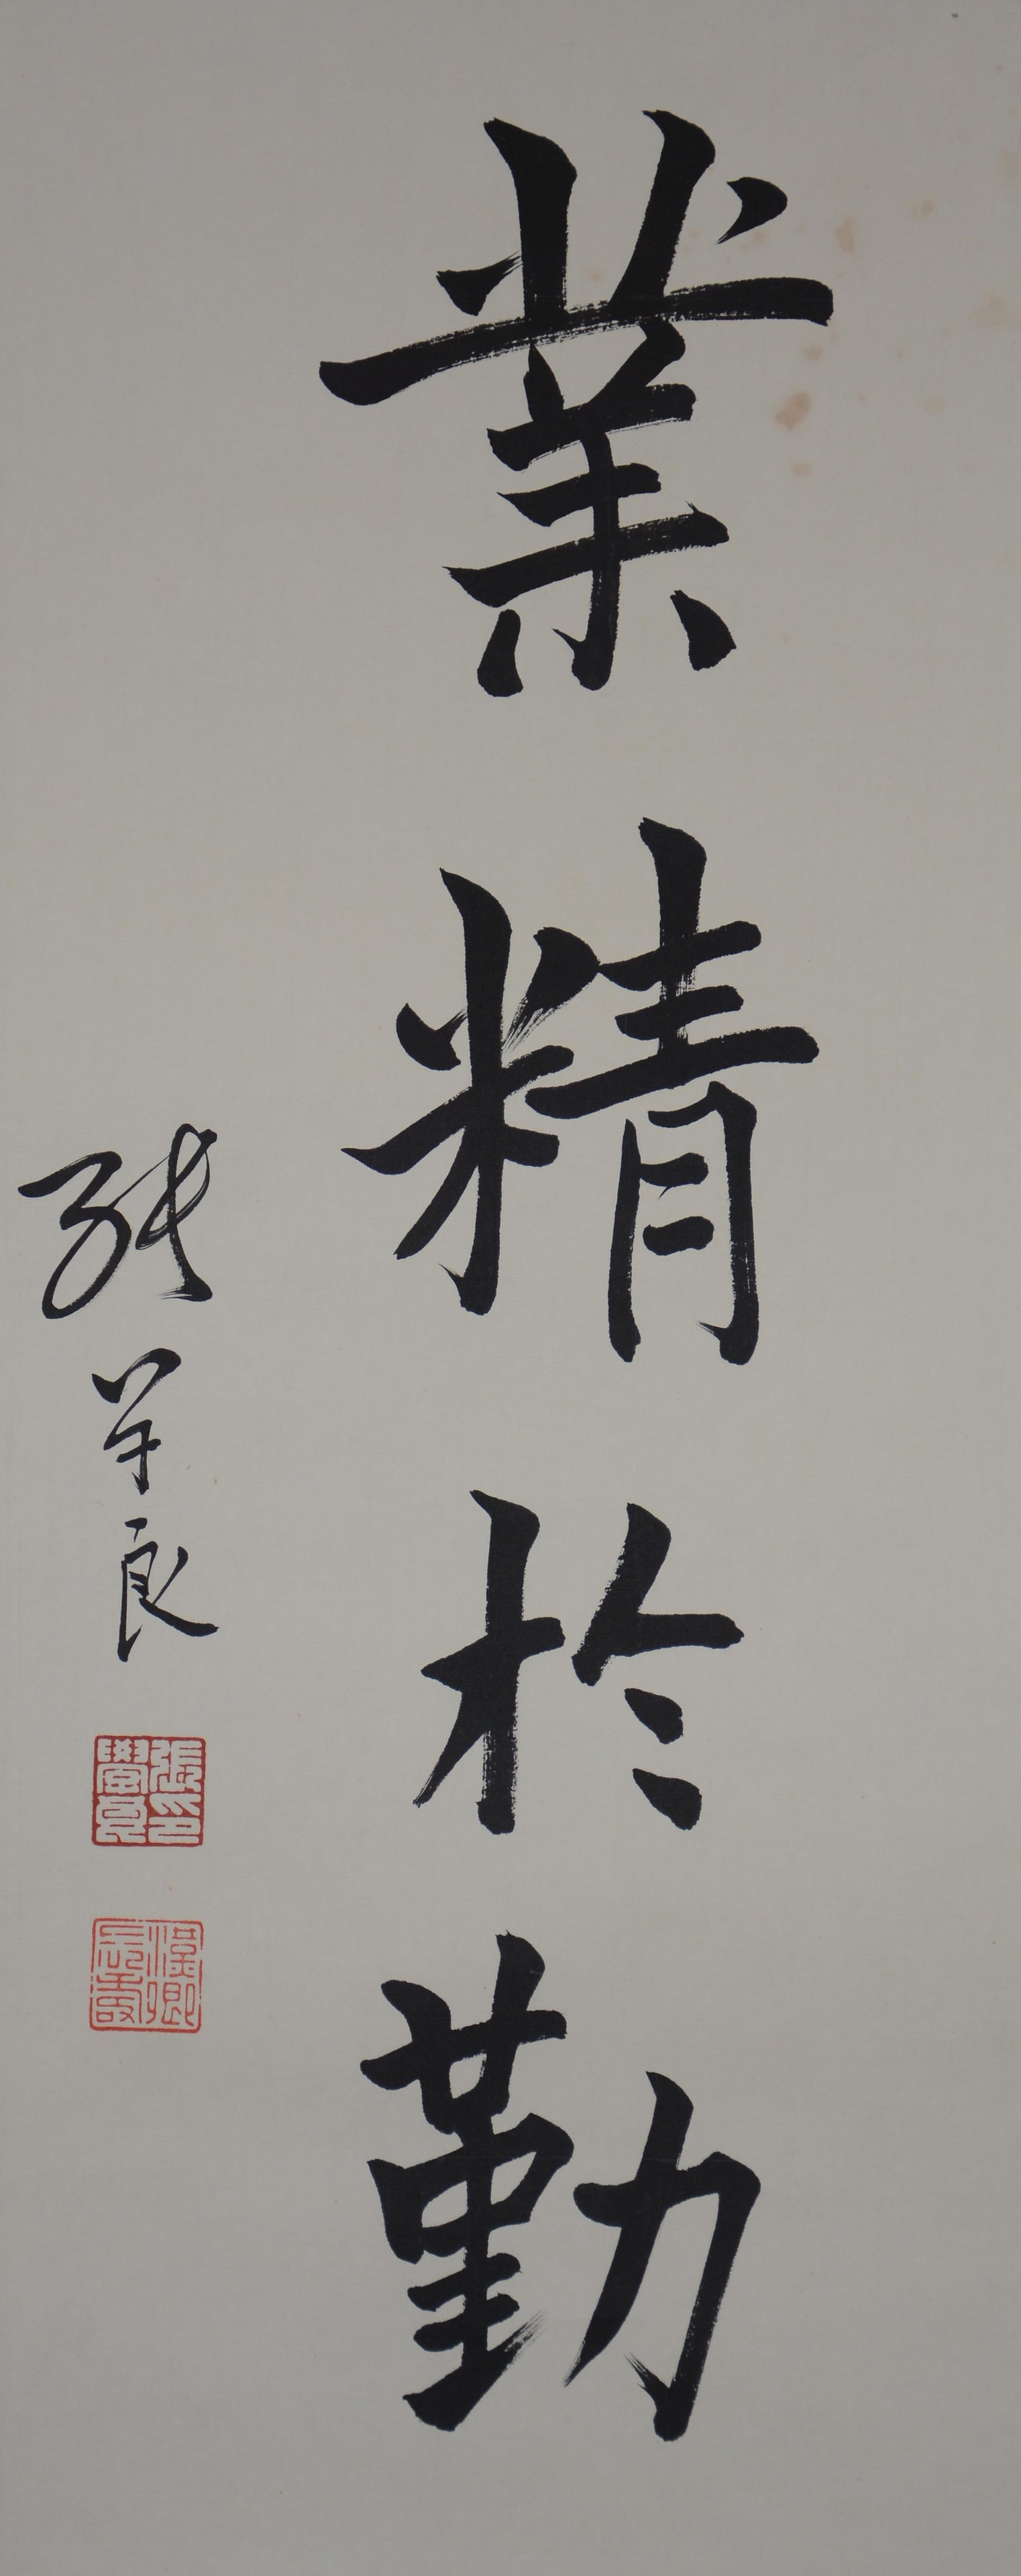 業精於勤
張學良
張學良印
漢卿長壽